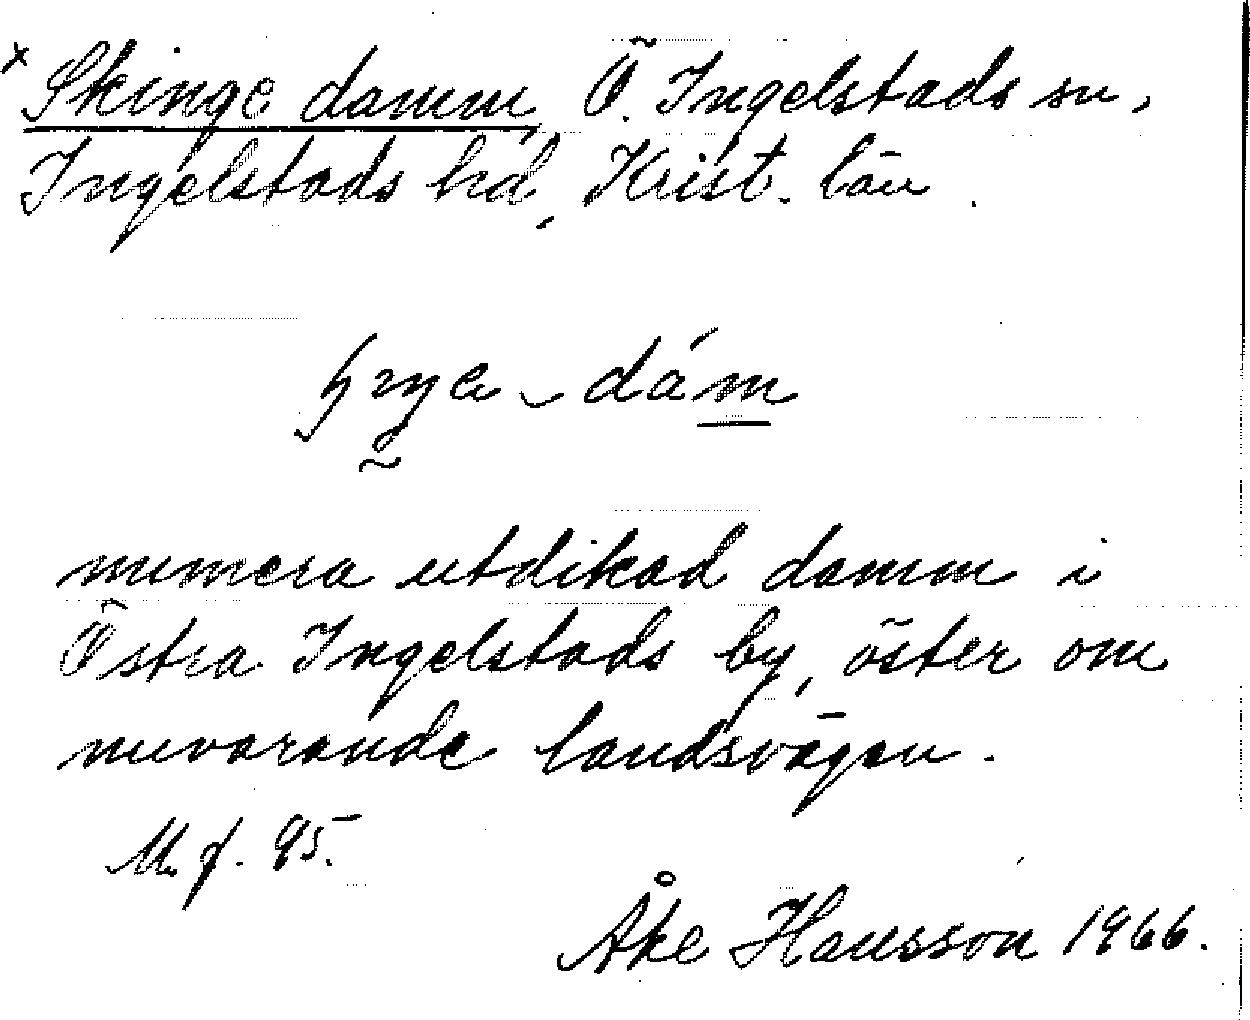 × Skinge damm, Ö. Ingelstads sn,
Ingelstads hd, Krist. län.
numera utdikad damm i
Östra Ingelstads by, öster om
nuvarande landsvägen.
M. f. 95.
Åke Hansson 1966.